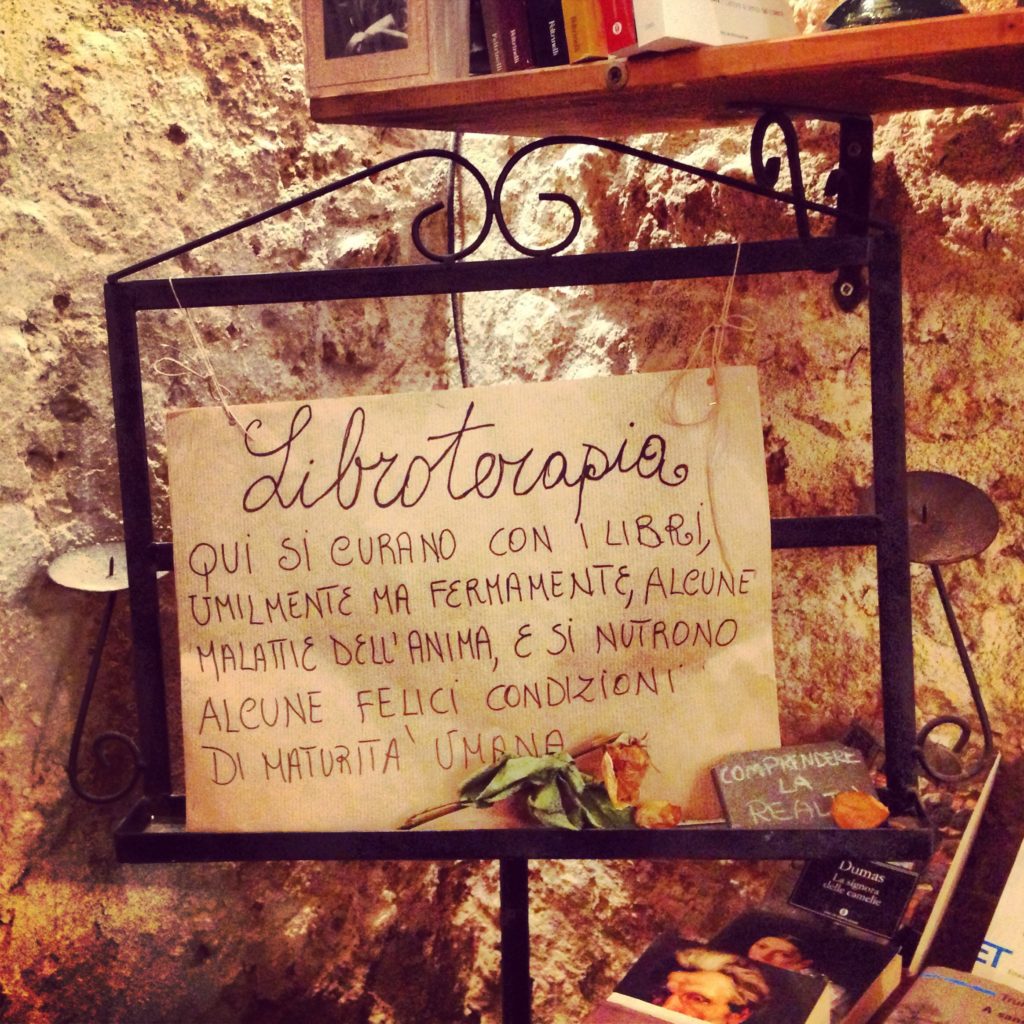 Feltrinelli
Feltrinelli
Libroterapia
QUI SI CURANO CON I LIBRI,
UMILMENTE MA FERMAMENTE, ALCUNE
MALATTIE DELL'ANIMA, E SI NUTRONO
ALCUNE FELICI CONDIZIONI
DI MATURITA' UMANA
COMPRENDERE
LA
Dumas
La signora
delle camelie
ET